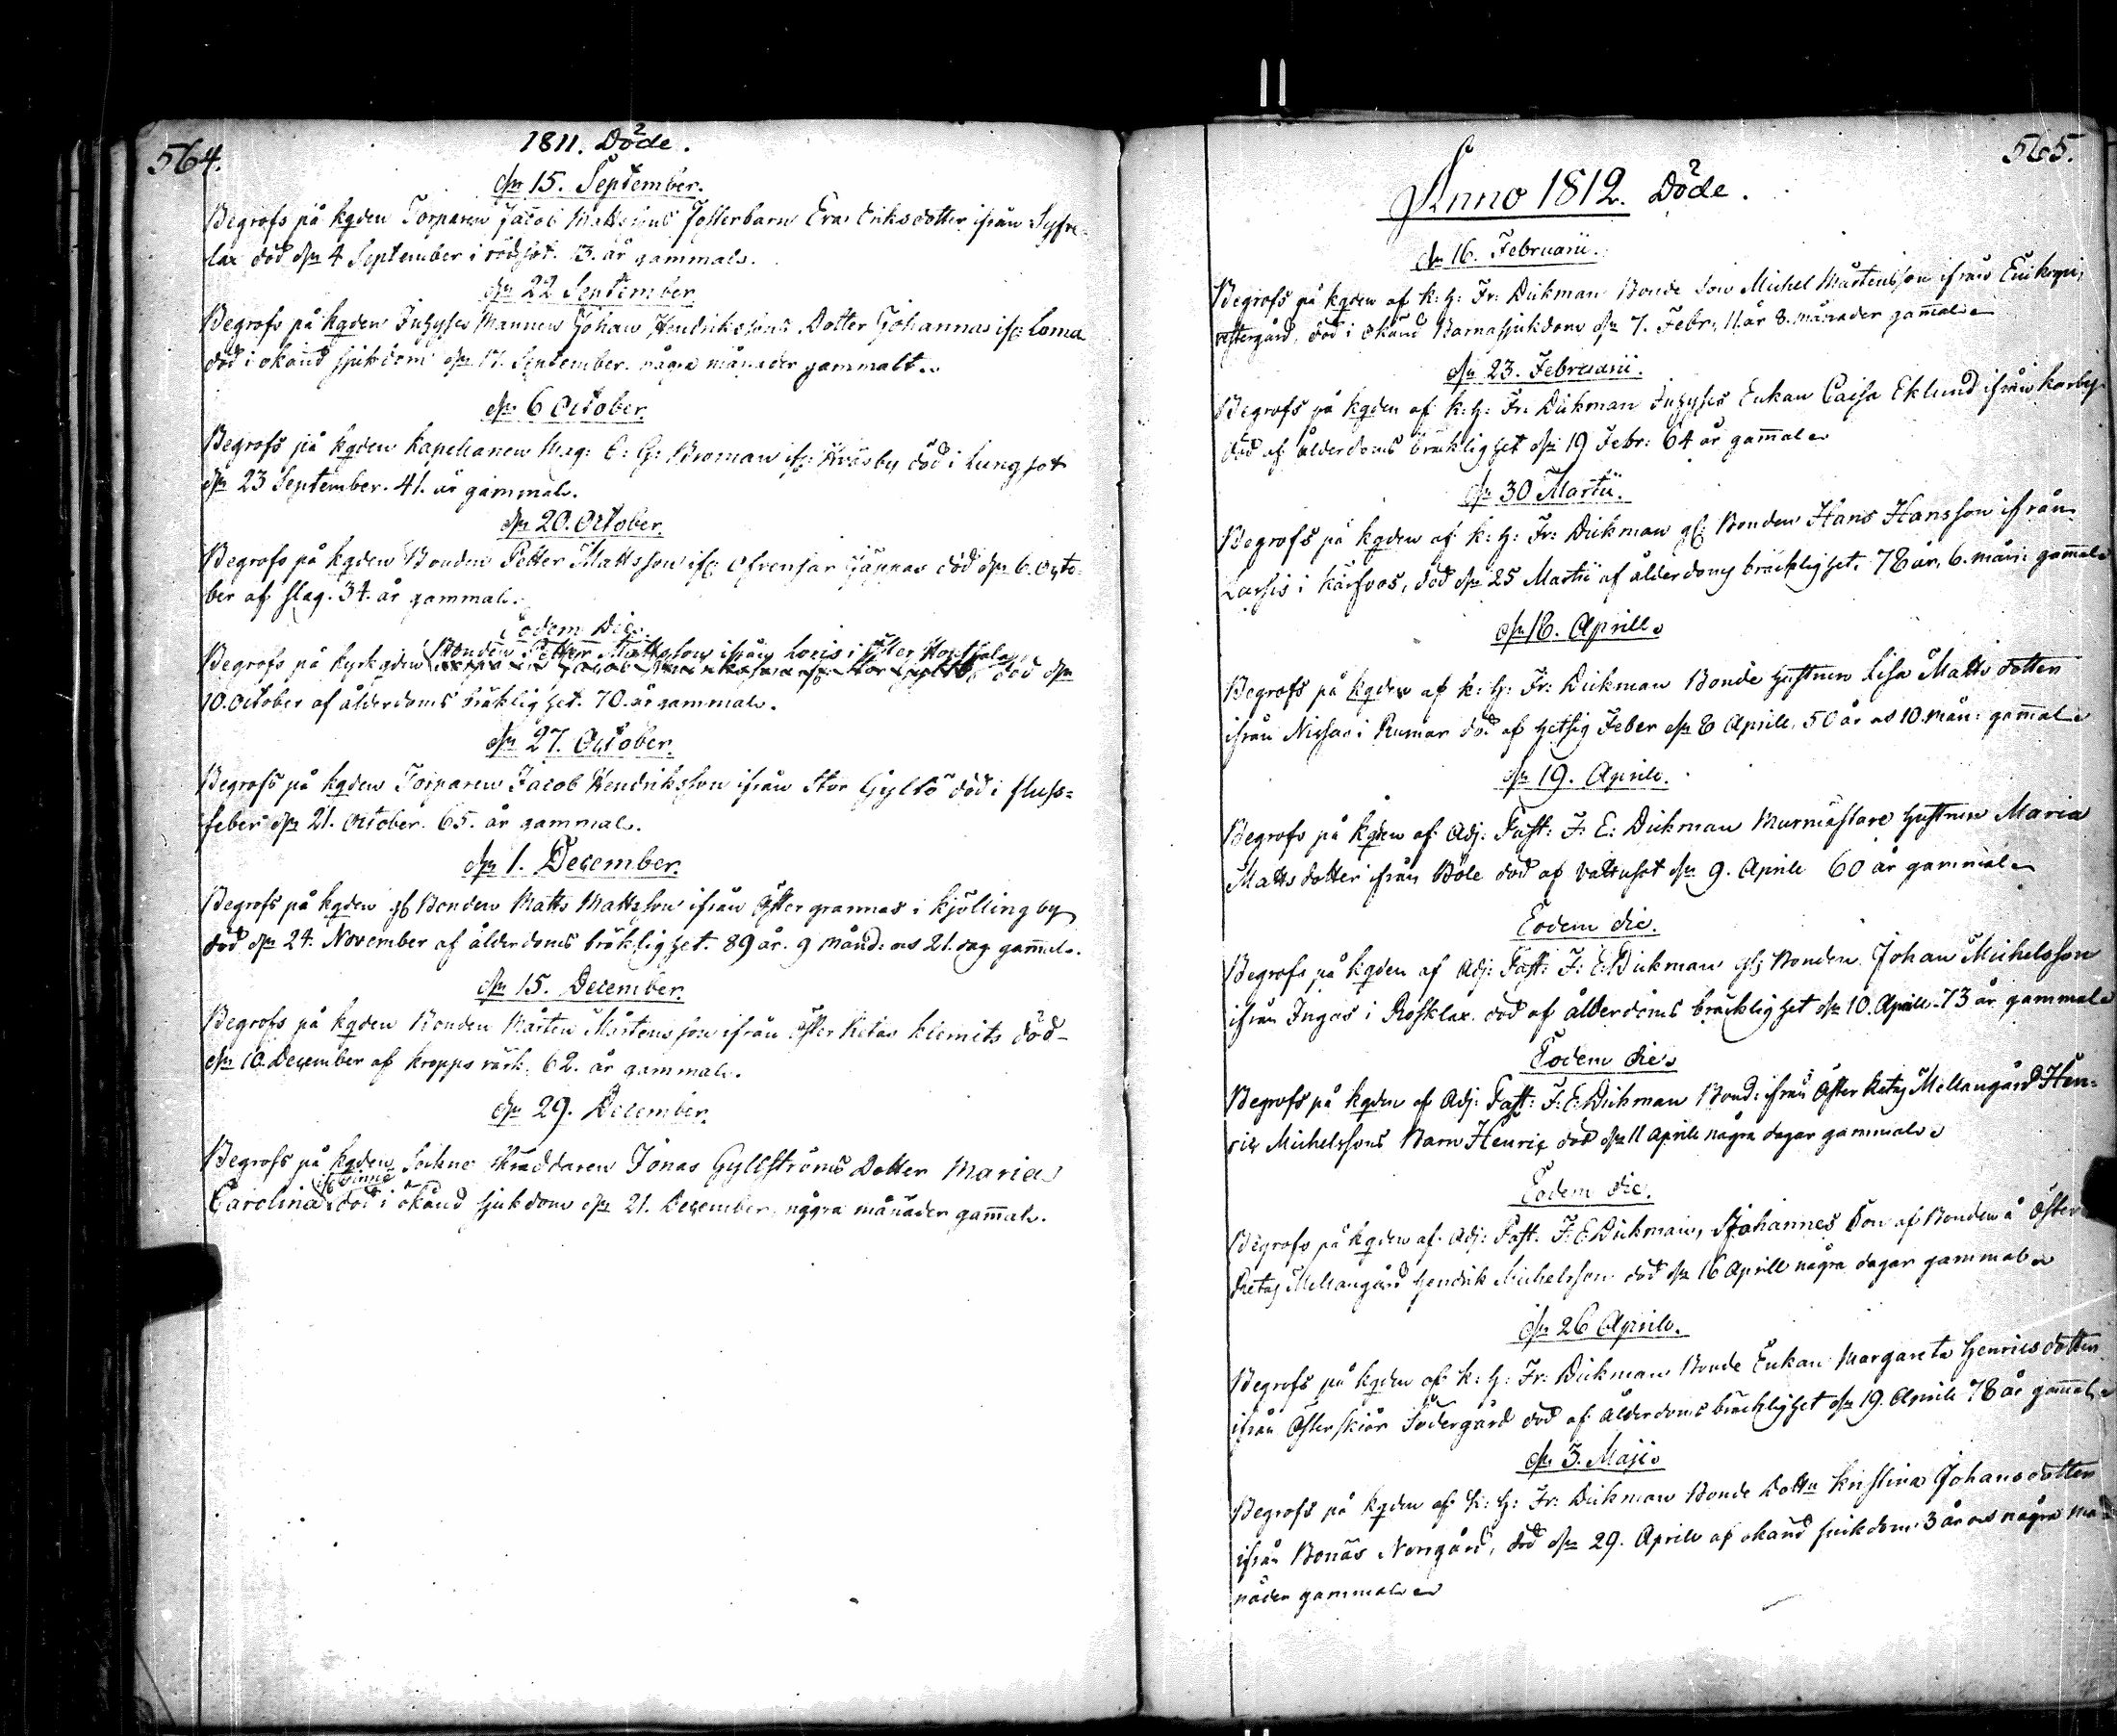 564.
1811. Döde.
den 15. September.
Begrofs på kgden Torparen Jacob Mattssons Fosterbarn Eva Eriksdotter ifrån Syfve-
lax död den 4 September i rödsot. 3. år gammal.
den 22 September
Begrofs på kgden Inhyses Mannen Johan Hendrikssons Dotter Johanna if: Loma
död i okänd sjukdom den 17. September. några månader gammalt.
den 6 October.
Begrofs på kgden Kapellanen Mag: C: G: Broman if: Träsby död i Lungsot
den 23 September. 41. år gammal.
den 20. October.
Begrofs på kgden Bonden Petter Mattsson if: Ofvensjär död den 6. Octo-
ber af slag. 34. år gammal.
Eodem Die.
Bonden Petter Mattsson ifrån Loris i
Begrofs på Kyrkgden död den
10. October af ålderdoms bräklighet. 70. år gammal.
den 27. October.
Begrofs på kgden Torparen Jacob Hendriksson ifrån Stor Gyltö död i fluss-
feber den 21. October. 65. år gammal.
den 1. December.
Begrofs på kgden gl Bonden Matts Mattsson ifrån Öster grannas i Kjölling by
död den 24. November af ålderdoms bräklighet. 89 år. 9 månd: os 21. dag gam̄al.
den 15. December.
Begrofs på kgden Bonden Mårten Mårtensson ifrån Öster Retais Klemits död
den 10. December af kropps värk. 62. år gammal.
den 29. December.
Begrofs på kgden Sockne Skräddaren Jonas Gyllströms Dotter Maria
if: Finnö
Carolina död i okänd sjukdom den 21. December, några månader gam̄al.
565.
Anno 1812. Döde.
den 16. Februarii.
Begrofs på kgden af K: H: Fr: Dickman Bonde Son Michel Mårtensson ifrån
östergård, död i okänd Barnasjukdom den 7. Febr: 11. år 8. månader gam̄al
den 23. Februarii.
Begrofs på kgden af K: H: Fr: Dickman Inhyses Enkan Caisa Eklund ifrån Karby
död af ålderdoms bräklighet den 19 Febr: 64 år gam̄al
den 30 Martii.
Begrofs på kgden af K: H: Fr: Dickman gl: Bonden Hans Hansson ifrån
Larsis i Kärfvos, död den 25 Martii af ålderdoms bräcklighet. 78 år, 6. mån: gam̄al
den 18. Aprill
Begrofs på kgden af K: H: Fr: Dickman Bonde hustrun Lisa Matts dotter
ifrån Nissas i Rumar död af hetsig Feber den 8 Aprill. 50 år os 10. mån: gam̄al
den 19. Aprill.
Begrofs på kgden af Adj: Past: F: E: Dickman Murmästare hustrun Maria
Matts dotter ifrån Böle död af vattusot den 9. Aprill 60 år gammal
Eodem die.
Begrofs på kgden af Adj: Past: F: E: Dickman gl: Bonden Johan Michelsson
ifrån Ingas i Rosklax död af ålderdoms bräcklighet den 10. Aprill. 73 år gammal
Eodem die
Begrofs på kgden af Adj: Past: F: E: Dickman Bond: ifrån Öster Retais Mellangård Hen-
rik Michelssons Barn Henric död den 11 Aprill några dagar gammal
Eodem die.
Begrofs på kgden af Adj: Past. F: E: Dickman, Johannes Son af Bonden å Öster
Retais Mellangård Hendrik Michelsson död den 16 Aprill några dagar gammal
den 26 Aprill.
Begrofs på kgden af K: H: Fr: Dickman Bonde Enkan Margareta Henricsdotter
ifrån Österskär Södergård död af ålderdoms bräcklighet den 19. Aprill 78 år gam̄al
den 3. Maji
Begrofs på kgden af K: H: Fr: Dickman Bonde Dotter Kristina Johansdotter
ifrån Bonäs Norrgård, död den 29. Aprill af okänd sjukdom 3 år os några må-
nader gammal